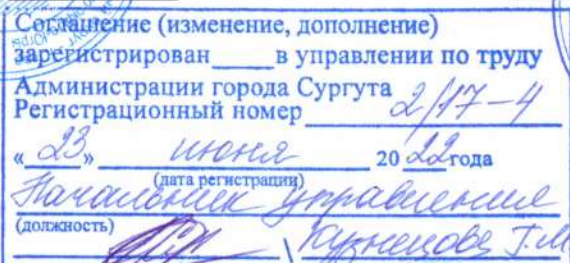 Соглашение (изменение, дополнение)
зарегистрирован____ в управлении по труду
Администрации города Сургута
Регистрационный номер 2/17-4
« 23 » июня 20 22 года
(дата регистрации)
Начальник управления
(должность)
\ Кузнецова Г.М